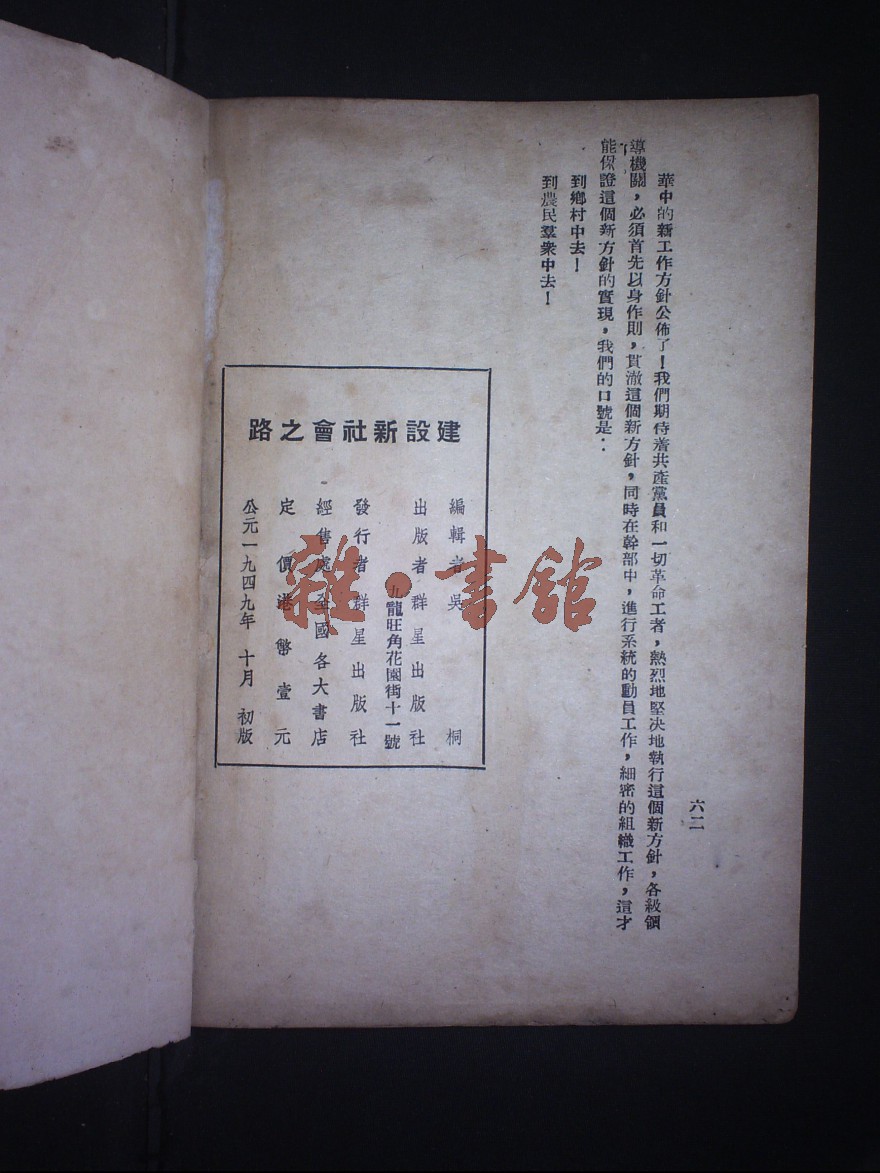 華中的新工作方針公佈了！我們期待着共產黨員和一切革命工者，熱烈地堅决地執行這個新方針，各級領
導機關，必須首先以身作則，貫澈這個新方針，同時在幹部中，進行系統的動員工作，細密的組織工作，這才
能保證這個新方針的實現，我們的口號是：
到鄉村中去！
到農民羣衆中去！
六二
建設新社會之路
編輯者吳桐
出版者群星出版社
九龍旺角花園街十一號
發行者群星出版社
經售處全國各大書店
定價港幣壹元
公元一九四九年十月初版
雜·書館